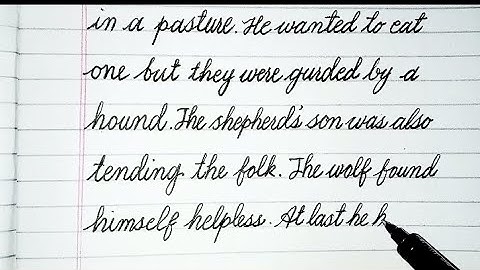 in a pasture. He wanted to eat
one but they were gurded by a
hound. The shepherd's son was also
tending the folk. The wolf found
himself helpless. At last he h